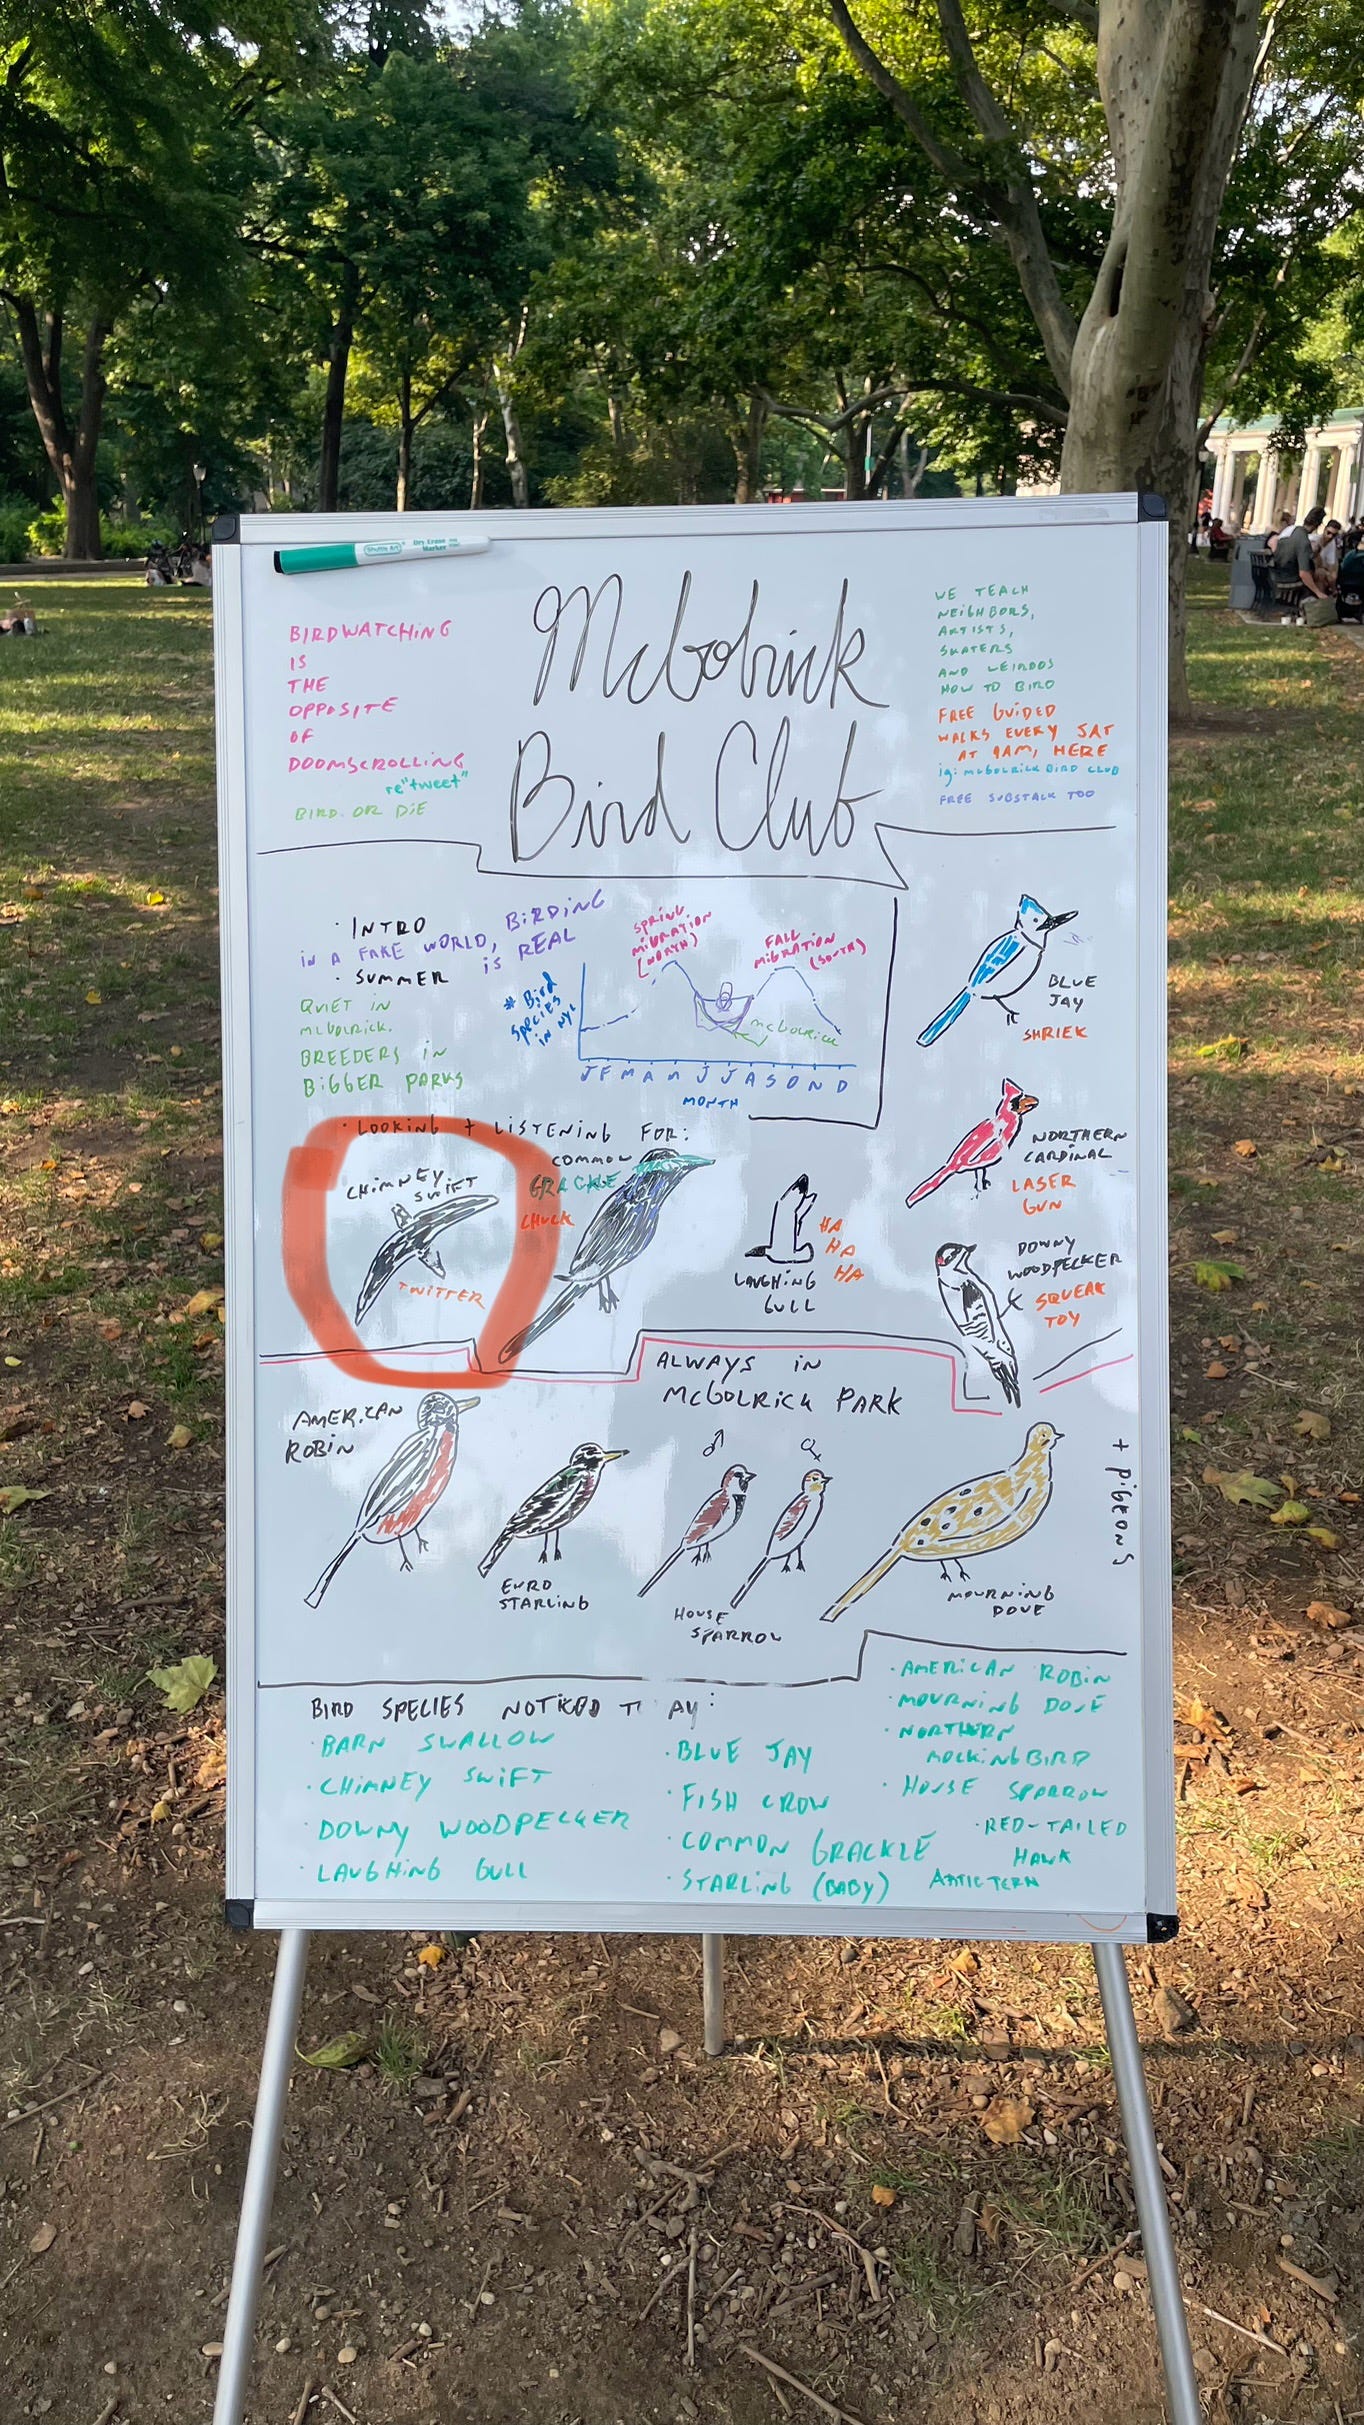 Shuttle Art
Dry Erase
Marker
BIRDWATCHING
IS
THE
OPPOSITE
OF
DOOMSCROLLING
re"tweet"
BIRD OR DIE
McGolrick
Bird Club
WE TEACH
NEIGHBORS,
ARTISTS,
SKATERS
AND WEIRDOS
HOW TO BIRD
FREE GUIDED
WALKS EVERY SAT
AT 9AM, HERE
ig: McGOLRICK BIRD CLUB
FREE SUBSTACK TOO
· INTRO
IN A FAKE WORLD, BIRDING
IS REAL
· SUMMER
QUIET IN
McGOLRICK.
BREEDERS IN
BIGGER PARKS
# Bird
Species
in NYC
SPRING
MIGRATION
(NORTH)
FALL
MIGRATION
(SOUTH)
McGOLRICK
J F M A M J J A S O N D
MONTH
BLUE
JAY
SHRIEK
NORTHERN
CARDINAL
LASER
GUN
DOWNY
WOODPECKER
SQUEAK
TOY
· LOOKING + LISTENING FOR:
CHIMNEY
SWIFT
TWITTER
COMMON
GRACKLE
CHUCK
HA
HA
HA
LAUGHING
GULL
ALWAYS IN
McGOLRICK PARK
AMERICAN
ROBIN
EURO
STARLING
♂
♀
HOUSE
SPARROW
MOURNING
DOVE
+ PIGEONS
BIRD SPECIES NOTICED T AY:
· BARN SWALLOW
· CHIMNEY SWIFT
· DOWNY WOODPECKER
· LAUGHING GULL
· BLUE JAY
· FISH CROW
· COMMON GRACKLE
· STARLING (BABY)
· AMERICAN ROBIN
· MOURNING DOVE
· NORTHERN
MOCKINGBIRD
· HOUSE SPARROW
· RED-TAILED
HAWK
ARCTIC TERN